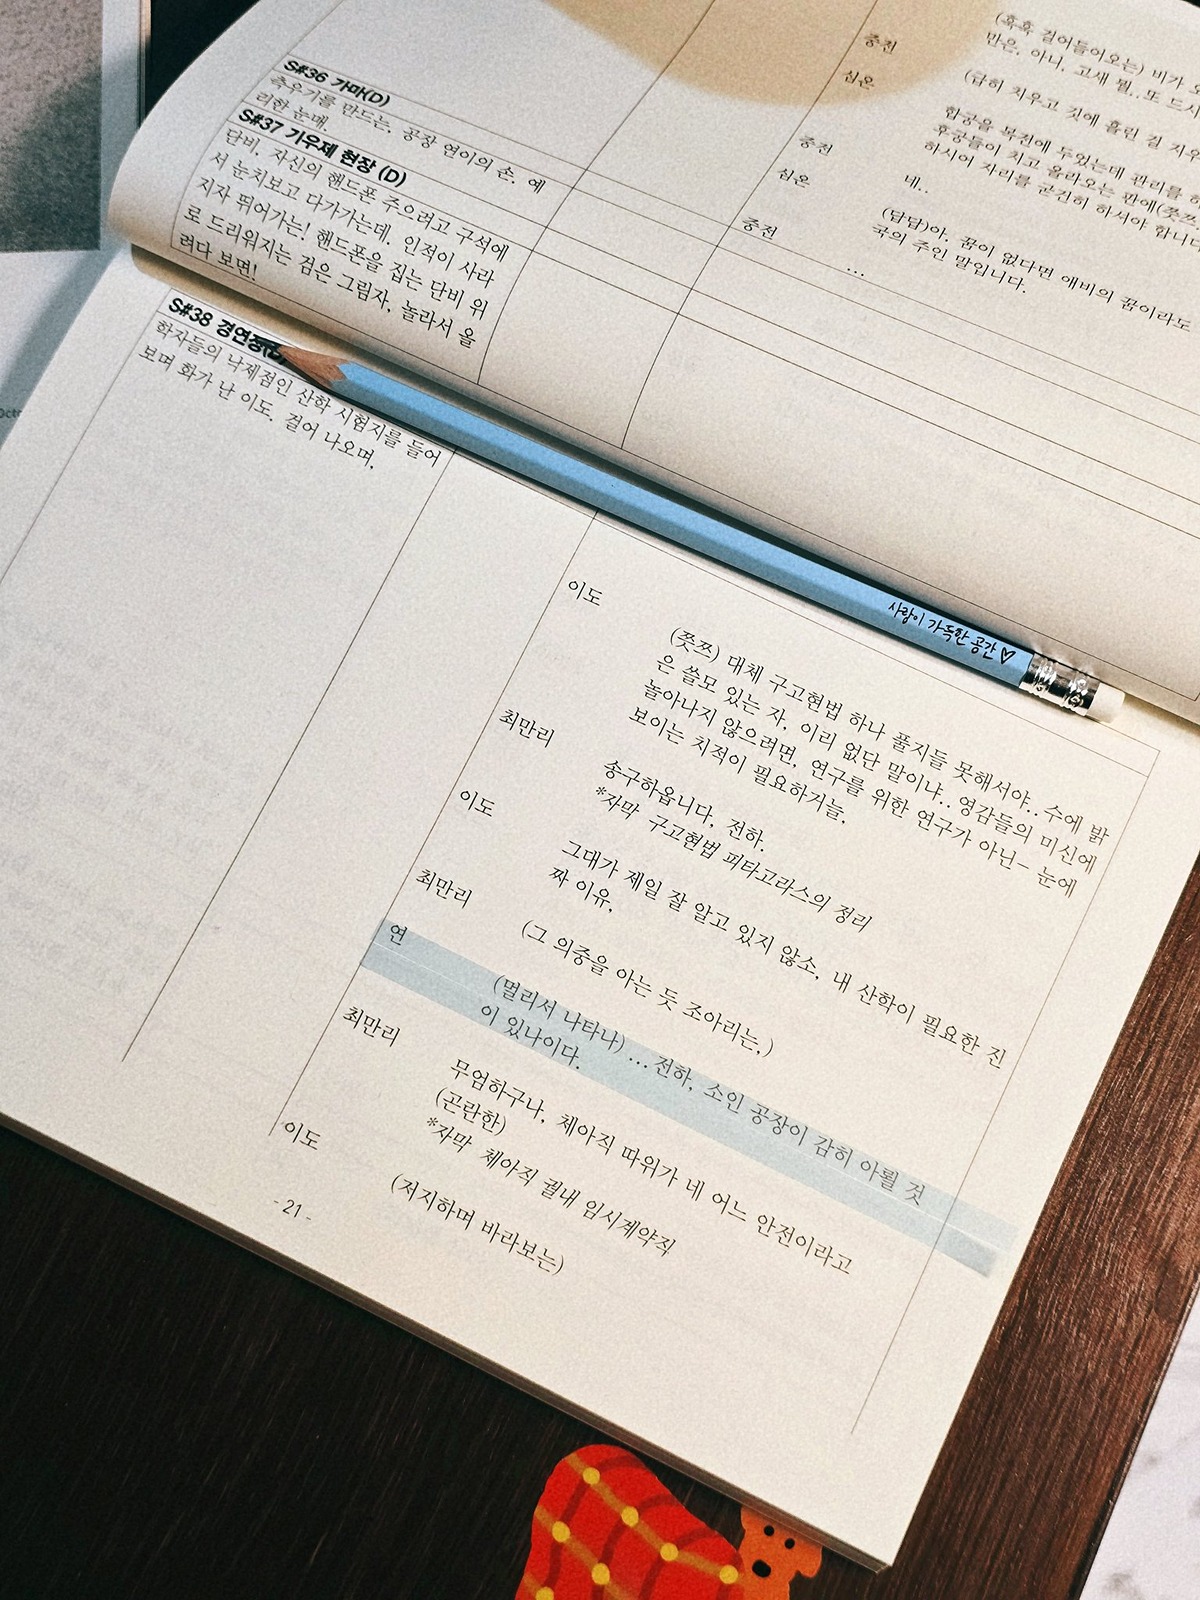 S#36 가마(D)
측우기를 만드는, 공장 연이의 손. 예
리한 눈매.
S#37 기우제 현장 (D)
단비, 자신의 핸드폰 주으려고 구석에
서 눈치보고 다가가는데. 인적이 사라
지자 뛰어가는! 핸드폰을 집는 단비 위
로 드리워지는 검은 그림자, 놀라서 올
려다 보면!
중전
심온
(훅훅 걸어들어오는) 비가
만은, 아니, 고새 뭘..또 드시
(급히 치우고 것에 흘린 걸
중전
합궁을 목전에 두었는데 관리를
후궁들이 치고 올라오는 판에(쯧쯧
하시어 자리를 굳건히 하셔야 합니다
심온
네..
중전
(답답)아, 꿈이 없다면 애비의 꿈이라도
국의 주인 말입니다.
...
S#38 경연장(D)
학자들의 낙제점인 산학 시험지를 들어
보며 화가 난 이도. 걸어 나오며,
이도
(쯧쯔) 대체 구고현법 하나 풀지들 못해서야.. 수에 밝
은 쓸모 있는 자, 이리 없단 말이냐.. 영감들의 미신에
놀아나지 않으려면, 연구를 위한 연구가 아닌- 눈에
보이는 치적이 필요하거늘,
최만리
송구하옵니다, 전하.
*자막 구고현법 피타고라스의 정리
이도
그대가 제일 잘 알고 있지 않소, 내 산학이 필요한 진
짜 이유,
최만리
(그 의중을 아는 듯 조아리는,)
연
(멀리서 나타나) ... 전하, 소인 공장이 감히 아뢸 것
이 있나이다.
최만리
무엄하구나, 체아직 따위가 네 어느 안전이라고
(곤란한)
*자막 체아직 궐내 임시계약직
이도
(저지하며 바라보는)
- 21 -
사랑이 가득한 공간♡